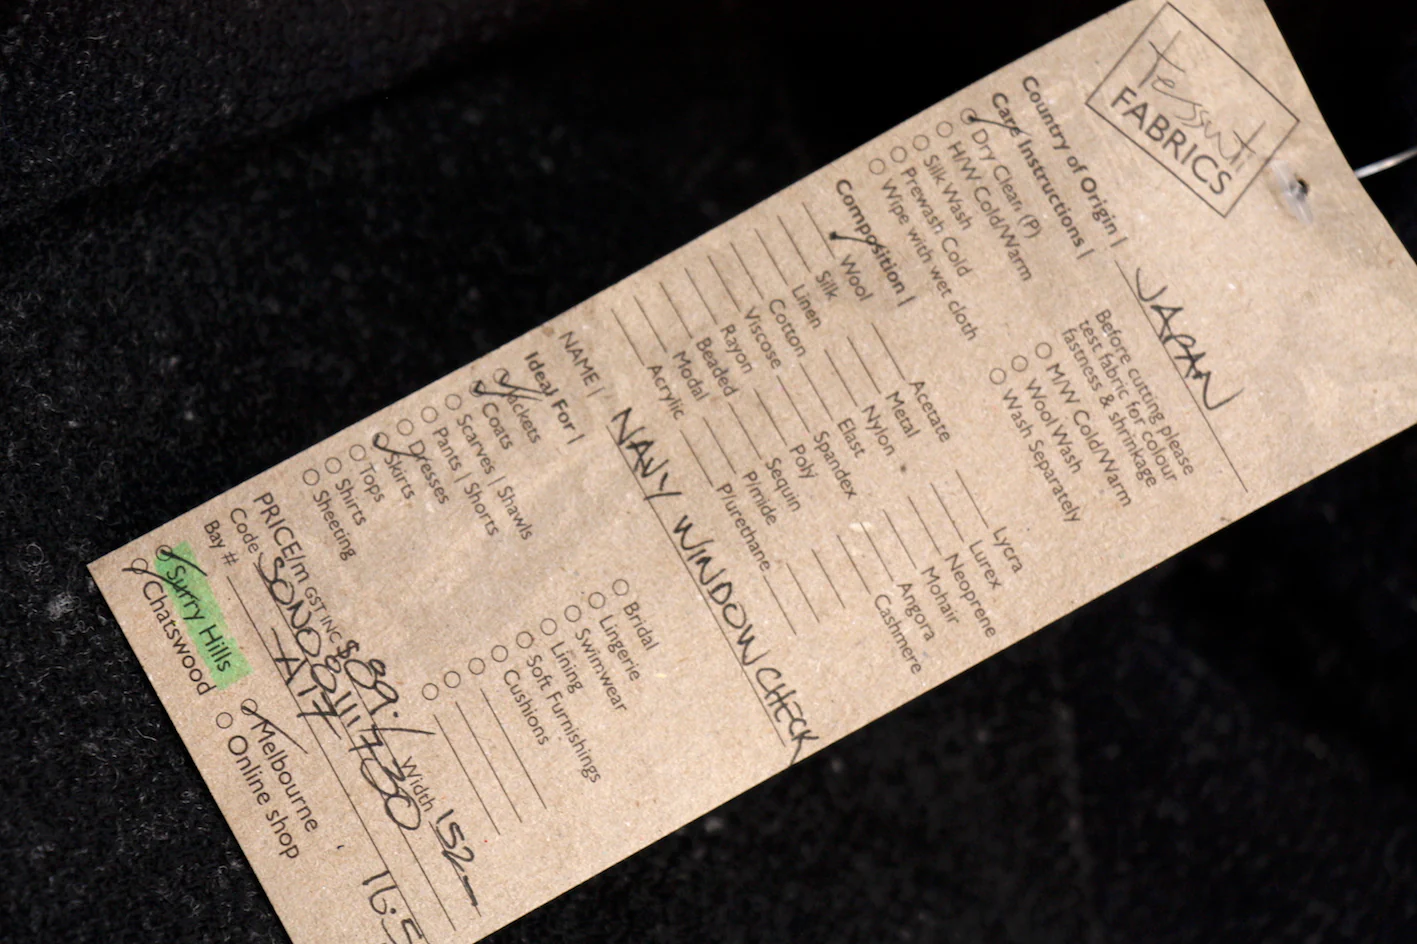 tessuti
FABRICS
Country of Origin | JAPAN
Care Instructions |
Before cutting please
test fabric for colour
fastness & shrinkage
Dry Clean (P)
H/W Cold/Warm
Silk Wash
Prewash Cold
Wipe with wet cloth
M/W Cold/Warm
Wool Wash
Wash Separately
Composition |
Wool
Silk
Linen
Cotton
Viscose
Rayon
Beaded
Modal
Acrylic
Acetate
Metal
Nylon
Elast
Spandex
Poly
Sequin
P/mide
P/urethane
Lycra
Lurex
Neoprene
Mohair
Angora
Cashmere
NAME | NAVY WINDOWCHECK
Ideal For |
Jackets
Coats
Scarves | Shawls
Pants | Shorts
Dresses
Skirts
Tops
Shirts
Sheeting
Bridal
Lingerie
Swimwear
Lining
Soft Furnishings
Cushions
PRICE/m GST INC $ 89.- Width 152
Code
Bay # A17
Surry Hills
Chatswood
Melbourne
Online shop
16.5